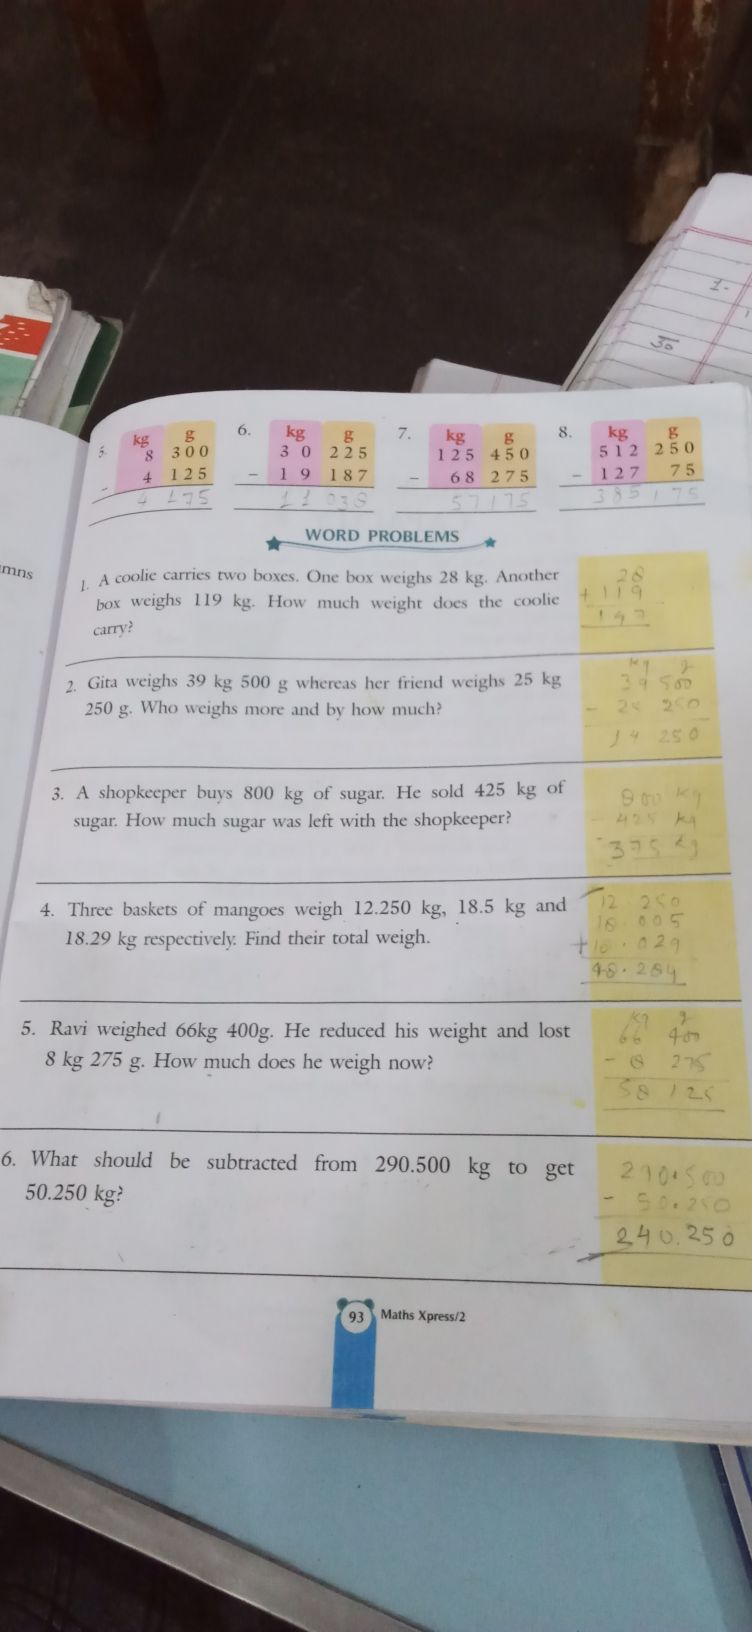 5. kg g 6. kg g 7. kg g 8. kg g
8 300 30 225 125 450 512 250
- 4 125 - 19 187 - 68 275 - 127 75
4 175 11 038 57175 385 175
WORD PROBLEMS
mns
1. A coolie carries two boxes. One box weighs 28 kg. Another
box weighs 119 kg. How much weight does the coolie
carry?
28
+ 119
147
2. Gita weighs 39 kg 500 g whereas her friend weighs 25 kg
250 g. Who weighs more and by how much?
kg g
39 500
- 25 250
14 250
3. A shopkeeper buys 800 kg of sugar. He sold 425 kg of
sugar. How much sugar was left with the shopkeeper?
800 kg
- 425 kg
375 kg
4. Three baskets of mangoes weigh 12.250 kg, 18.5 kg and
18.29 kg respectively. Find their total weigh.
12 250
18.005
+ 18.029
48.284
5. Ravi weighed 66kg 400g. He reduced his weight and lost
8 kg 275 g. How much does he weigh now?
kg g
66 400
- 8 275
58 125
6. What should be subtracted from 290.500 kg to get
50.250 kg?
290.500
- 50.250
240.250
93 Maths Xpress/2
1.
30